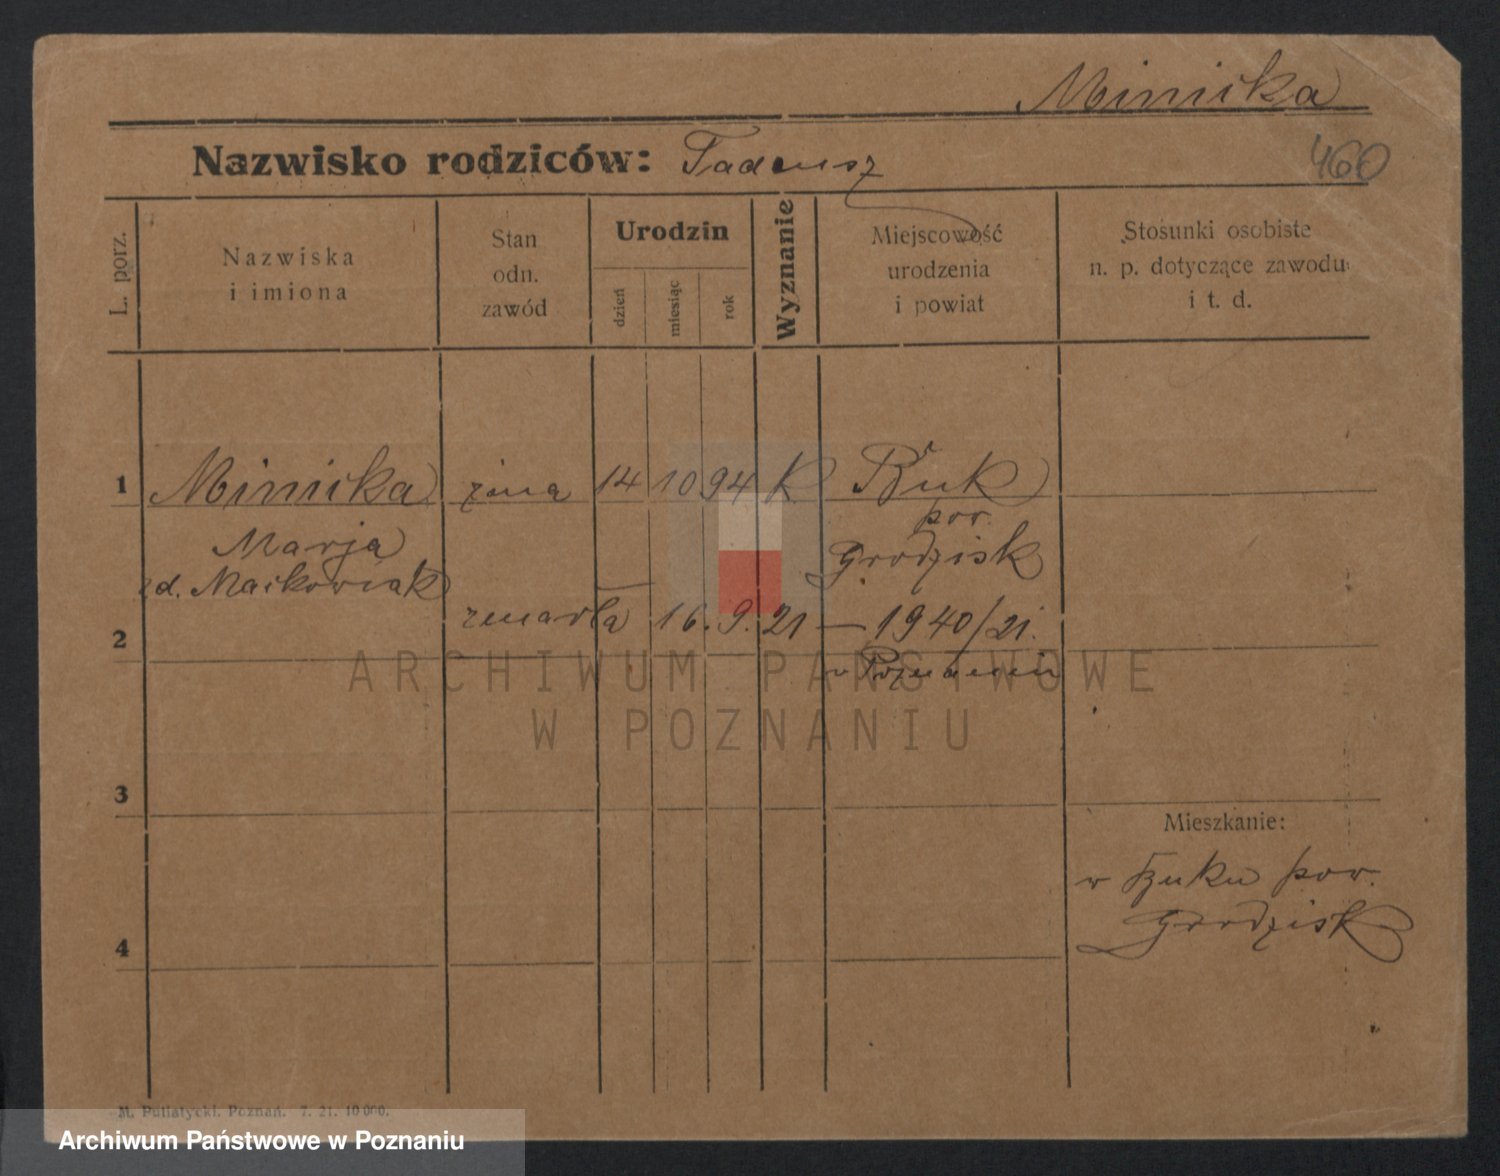 Mimicka
Nazwisko rodziców: Tadeusz
460
L. porz.
Nazwiska
i imiona
Stan
odn.
zawód
Urodzin
dzień
miesiąc
rok
Wyznanie
Miejscowość
urodzenia
i powiat
Stosunki osobiste
n. p. dotyczące zawodu
i t. d.
1 Mimicka żona 14 10 94 K Buk
pow.
Marja Grodzisk
zd. Maćkowiak
2 zmarła 16. 9. 21 — 1940/21.
w Poznaniu
ARCHIWUM PAŃSTWOWE
W POZNANIU
3
Mieszkanie:
w Buku pow.
Grodzisk
4
M. Putiatycki, Poznań. 7. 21. 10 000.
Archiwum Państwowe w Poznaniu